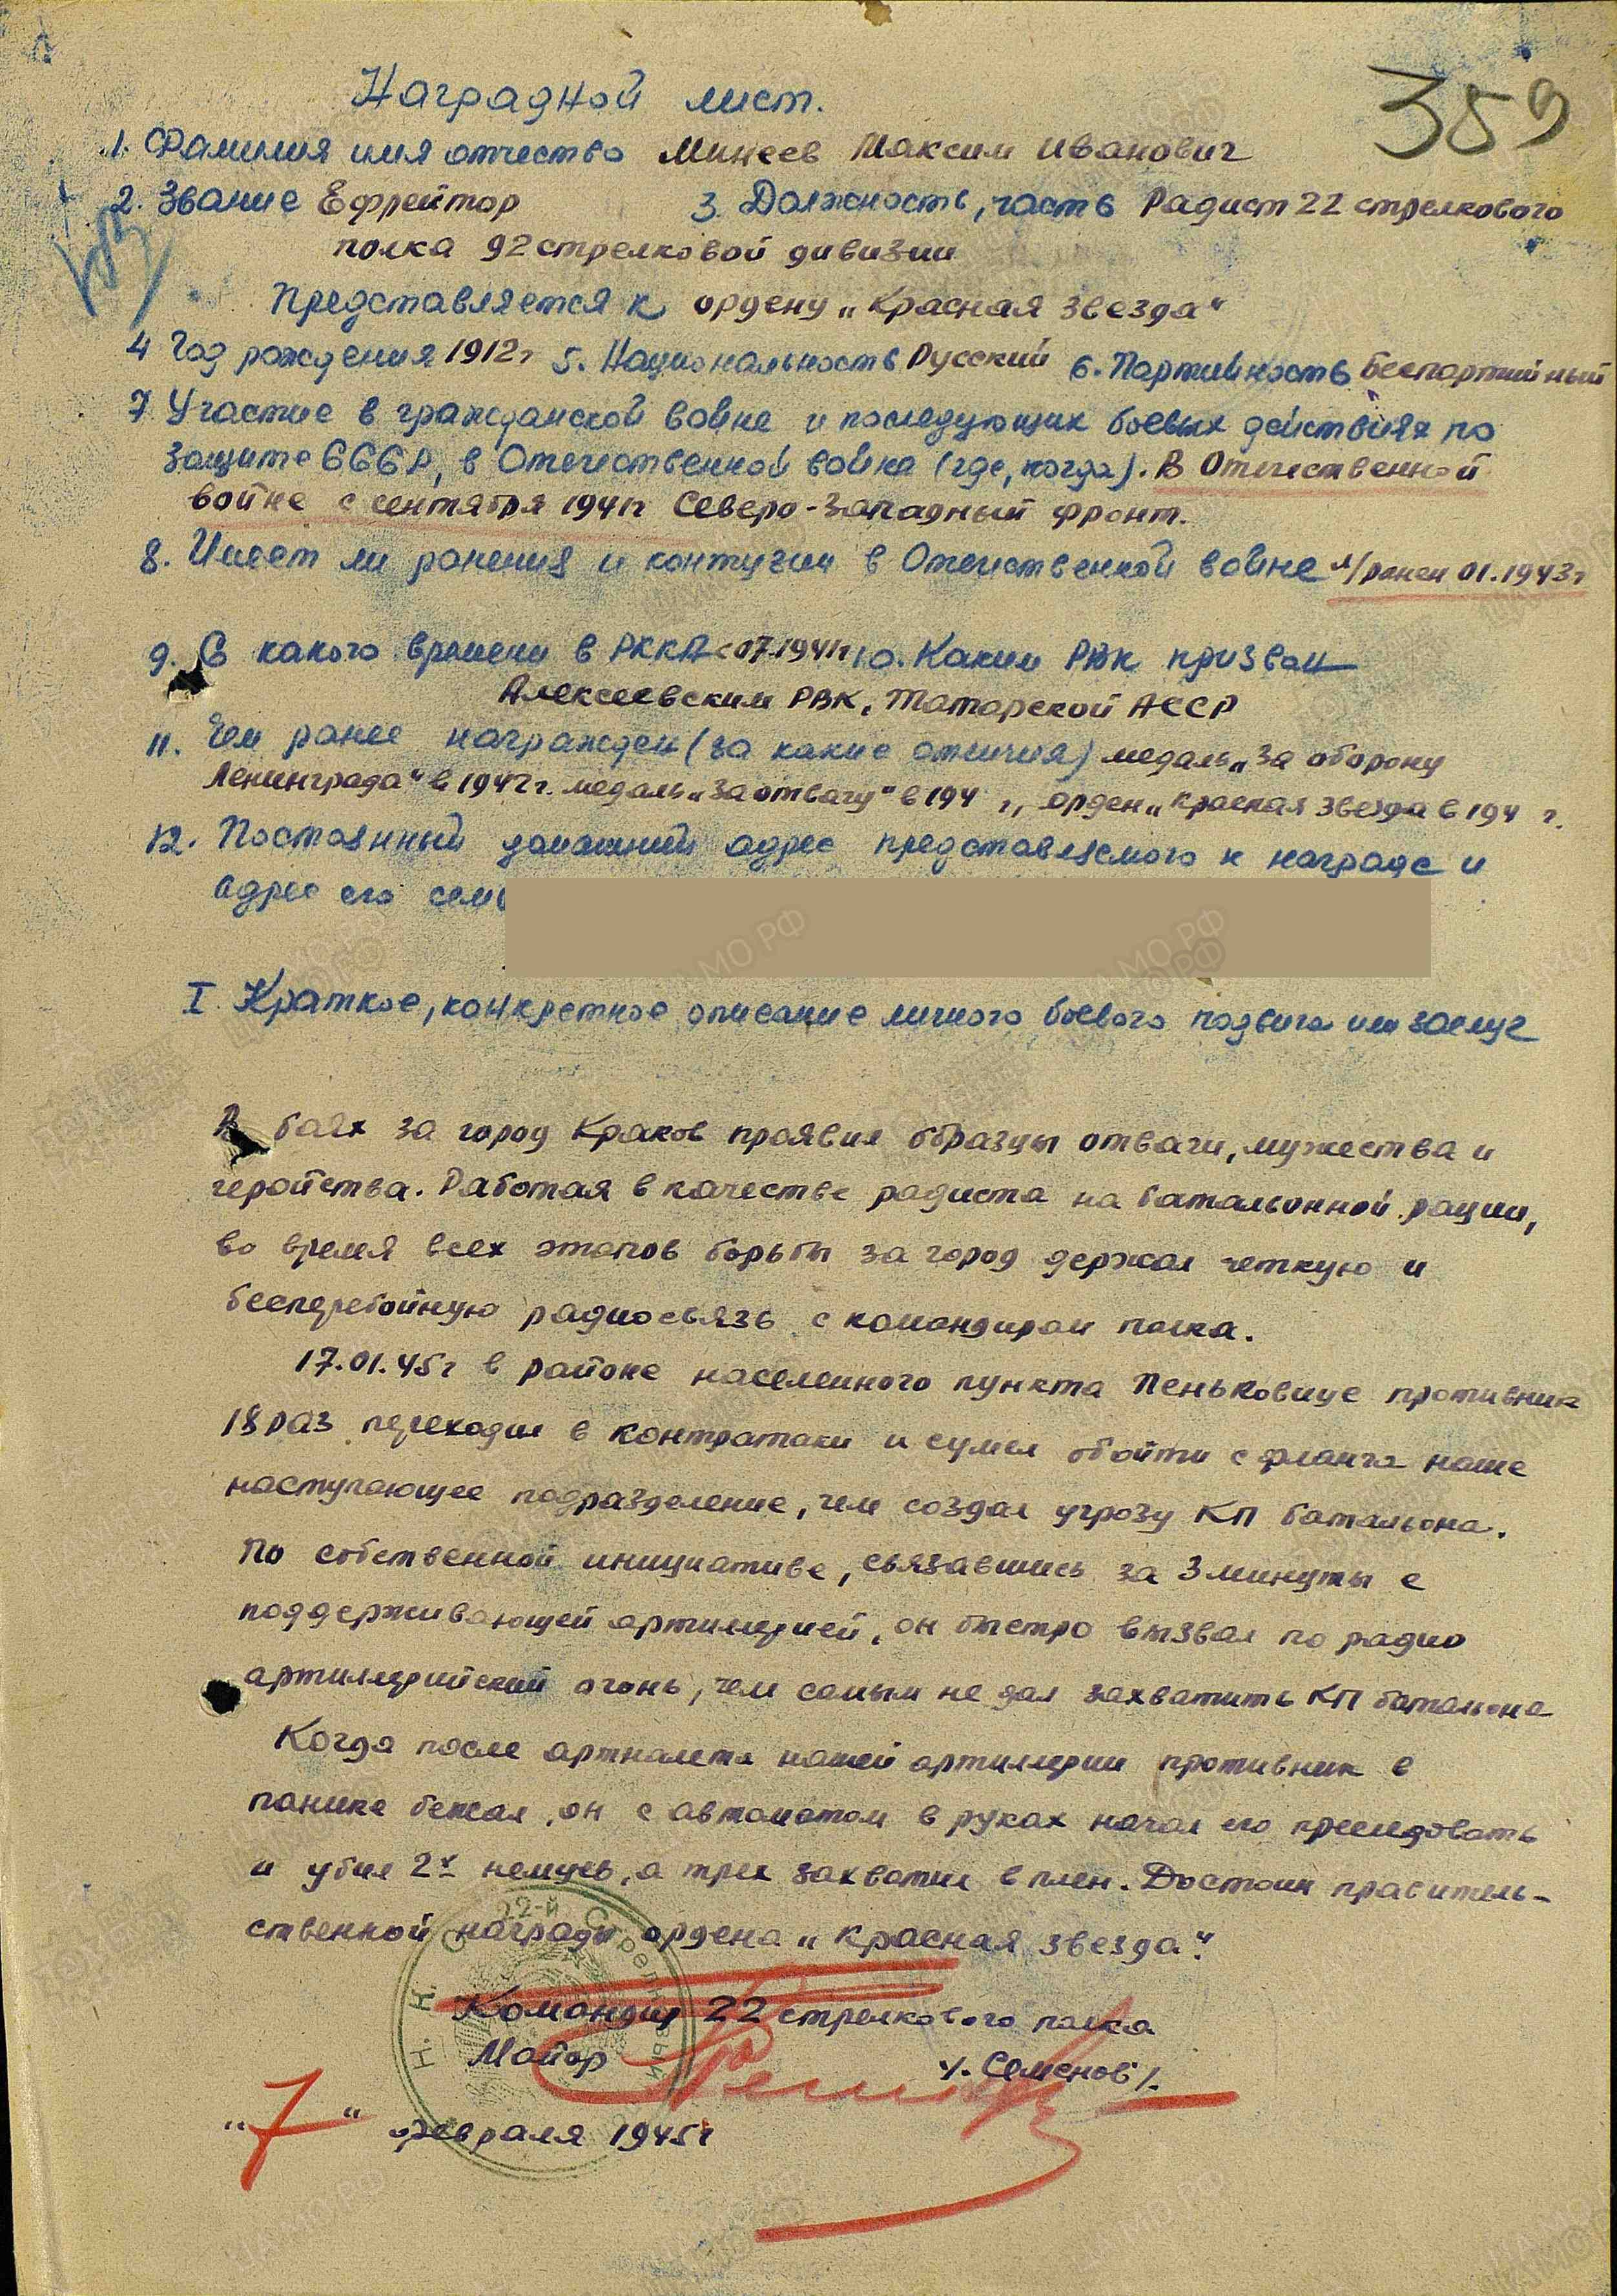 359
Наградной лист.
1. Фамилия имя отчество Минеев Максим Иванович
2. Звание Ефрейтор 3. Должность, часть Радист 22 стрелкового
полка 92 стрелковой дивизии
Представляется к ордену „Красная звезда“
4 Год рождения 1912г 5. Национальность Русский 6. Партийность Беспартийный
7 Участие в гражданской войне и последующих боевых действиях по
защите СССР, в Отечественной война (где, когда). В Отечественной
войне с сентября 1941г Северо-Западный фронт.
8. Имеет ли ранения и контузии в Отечественной войне л/ранен 01.1943г
9. С какого времени в РККА с 07.1941г 10. Каким РВК призван
Алексеевским РВК, Татарской АССР
11. Чем ранее награжден (за какие отличия) медаль „За оборону
Ленинграда“ в 1942г. медаль „За отвагу“ в 194 г, орден „Красная звезда в 194 г.
12. Постоянный домашний адрес представляемого к награде и
адрес его семь
I. Краткое, конкретное описание личного боевого подвига или заслуг
В боях за город Краков проявил образцы отваги, мужества и
геройства. Работая в качестве радиста на батальонной рации,
во время всех этапов борьбы за город держал четкую и
бесперебойную радиосвязь с командиром полка.
17.01.45г в районе населенного пункта Пеньковице противник
18 раз переходил в контратаки и сумел обойти с фланга наше
наступающее подразделение, чем создал угрозу КП батальона.
По собственной инициативе, связавшись за 3 минуты с
поддерживающей артиллерией, он быстро вызвал по радио
артиллерийский огонь, чем самым не дал захватить КП батальона
Когда после артналета нашей артиллерии противник в
панике бежал, он с автоматом в руках начал его преследовать
и убил 2х немцев, а трех захватил в плен. Достоин правитель-
ственной награды ордена „Красная звезда“.
Командир 22 стрелкового полка
Майор /. Семенов /.
„7“ февраля 1945г